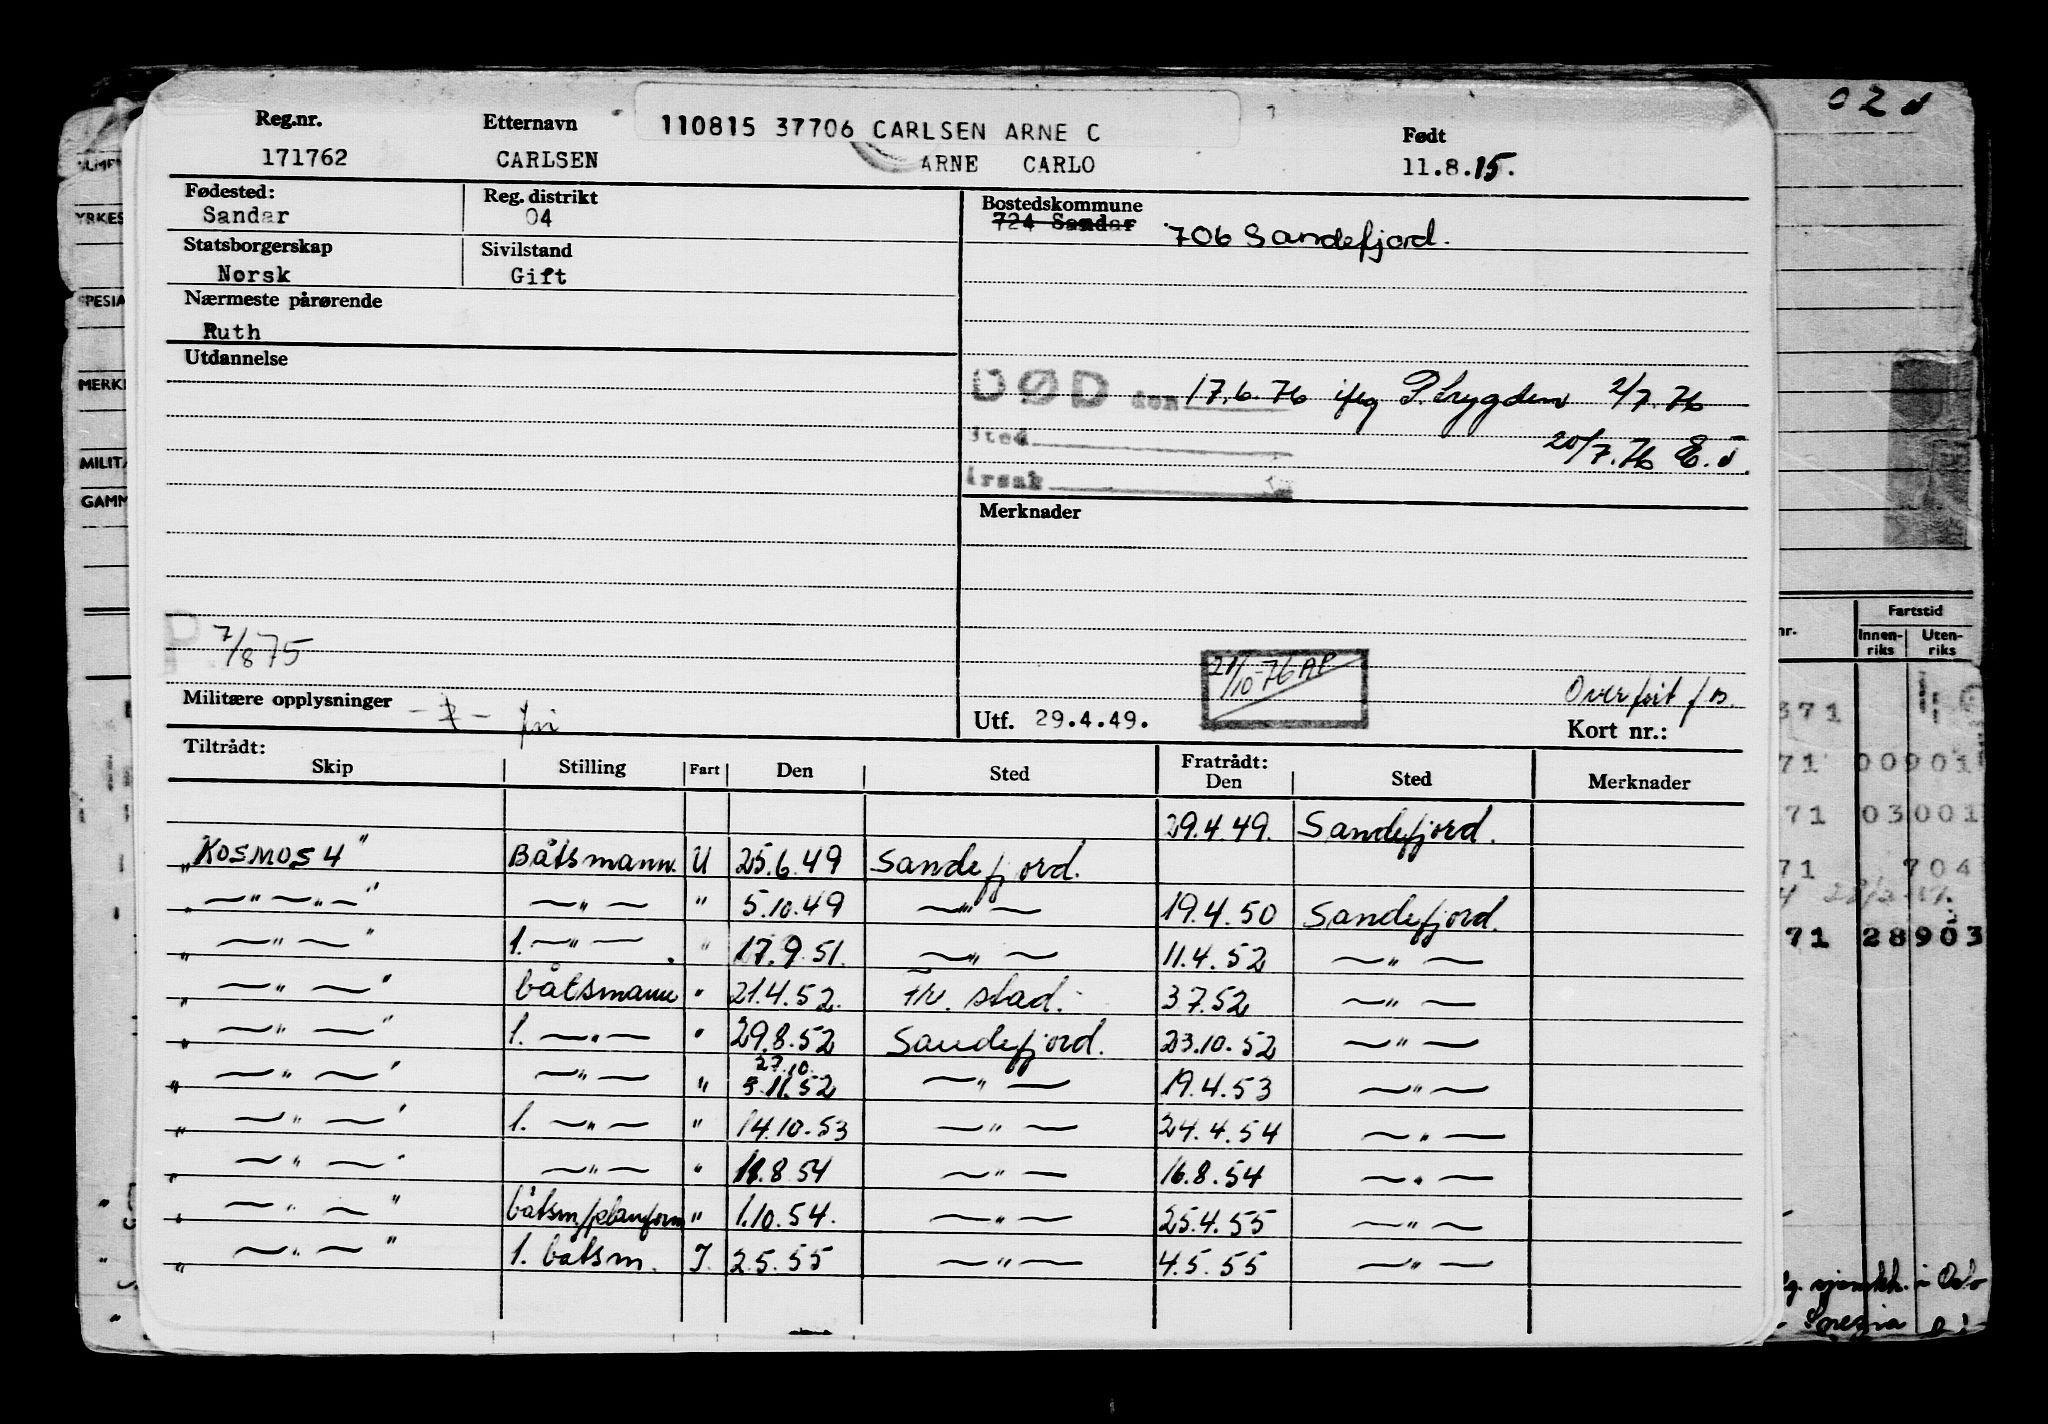 Reg.nr. Etternavn 110815 37706 CARLSEN ARNE C Født
171762 CARLSEN ARNE CARLO 11.8.15.
Fødested: Reg. distrikt Bostedskommune
Sandar 04 724 Sandar 706 Sandefjord.
Statsborgerskap Sivilstand
Norsk Gift
Nærmeste pårørende
Ruth
Utdannelse
DØD den 17.6.76 iføg P.trygden 2/7.76
Sted 20/7.76
Årsak
Merknader
7/8 75
21/10-76 AP
Militære opplysninger
Utf. 29.4.49. Overført
Kort nr.:
Tiltrådt: Fratrådt:
Skip Stilling Fart Den Sted Den Sted Merknader
29.4.49. Sandefjord.
„KOSMOS 4" Båtsmann. U 25.6.49 Sandefjord.
„—"—"—" —"— " 5.10.49 —"— 19.4.50 Sandefjord.
„—"—" 1. —"—. " 17.9.51. —"— 11.4.52 —"—
„—"—" båtsmann " 21.4.52. Fr. stad. 3.7.52 —"—
„—"—" 1. —"— " 29.8.52 Sandefjord. 23.10.52 —"—
27.10.
„—"—" —"— " 3.11.52 —"— 19.4.53 —"—
„—"—" 1. —"— " 14.10.53 —"— 24.4.54 —"—
„—"—" —"— " 11.8.54 —"— 16.8.54 —"—
„—"—" båtsm/planform " 1.10.54. —"— 25.4.55 —"—
„—"—" 1. båtsm. I. 2.5.55 —"— 4.5.55 —"—
YRKES
SPESIA
MERK
MILITÆ
GAMM
nr. Fartstid
Innen-riks Uten-riks
371
71 00901
71 03001
71 704
71 28903
i Oslo